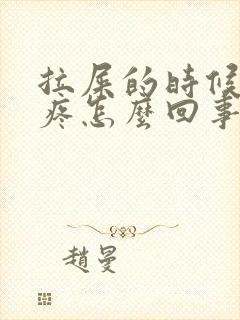 拉屎的時候
疼怎麼回事
趙曼